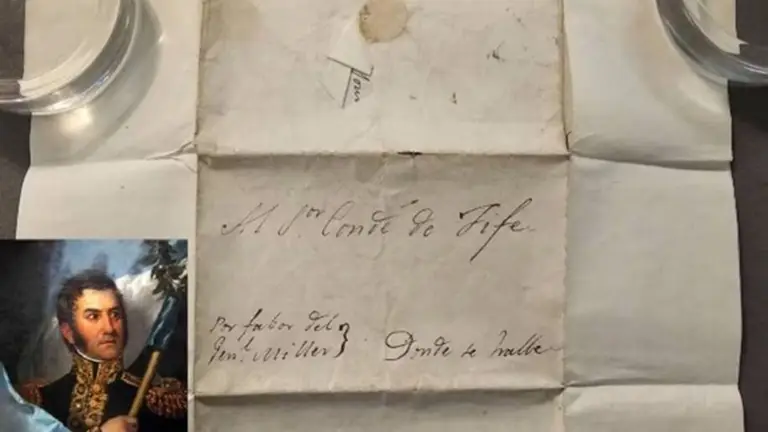 Al Sor Conde de Fife
Por fabor del
Genl Miller } Donde se halle